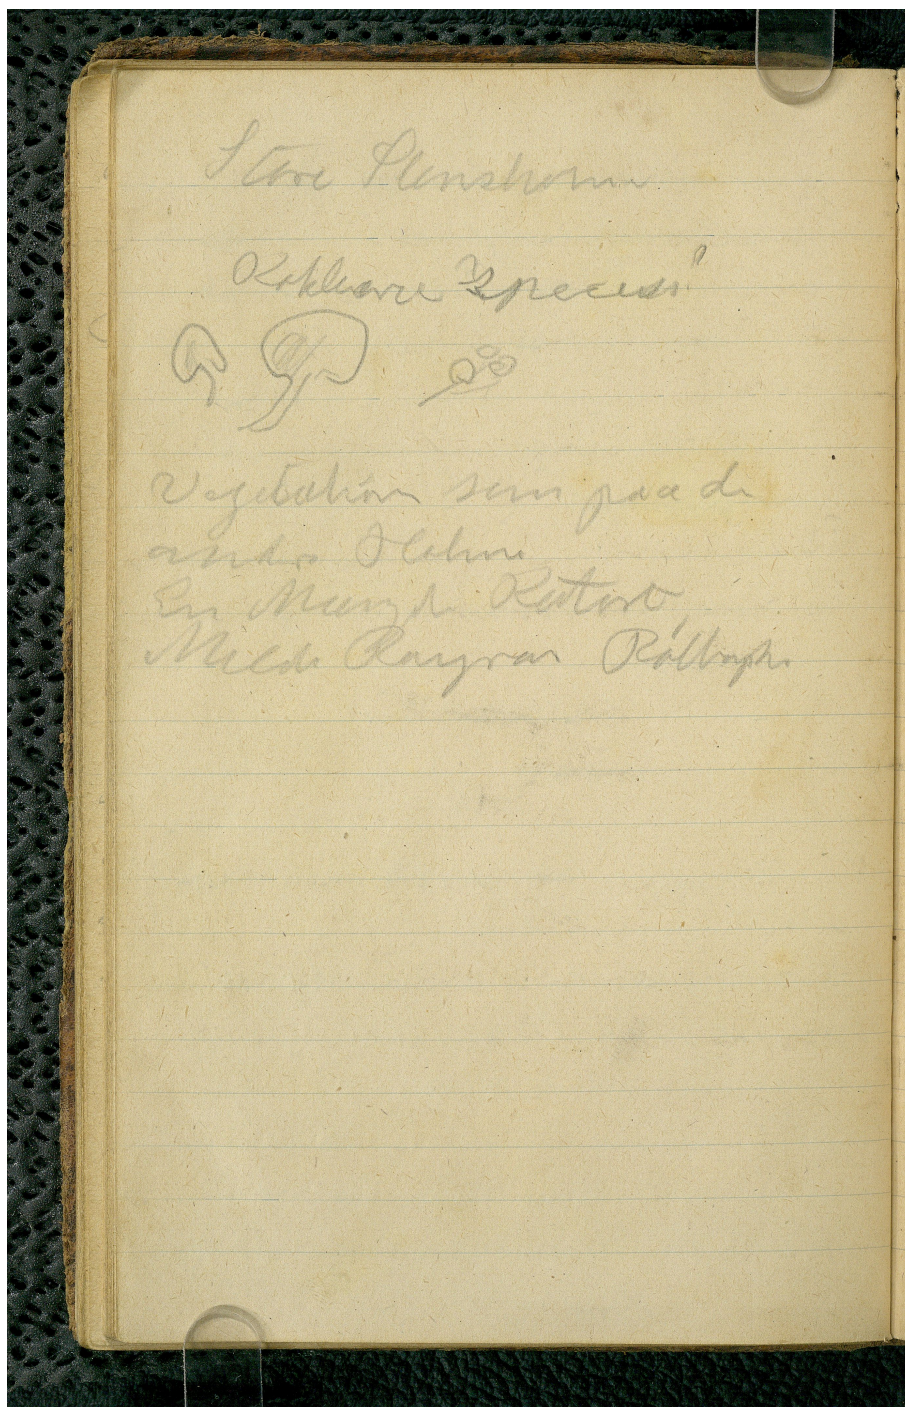 Store Stensholm
Kokleare "species"
Vegetation som paa de
andre Holme
En Mængde
Melde Raygræs Røllike